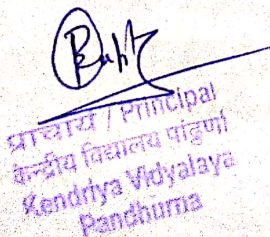 प्राचार्य / Principal
केन्द्रीय विद्यालय पांढुर्णा
Kendriya Vidyalaya
Pandhurna